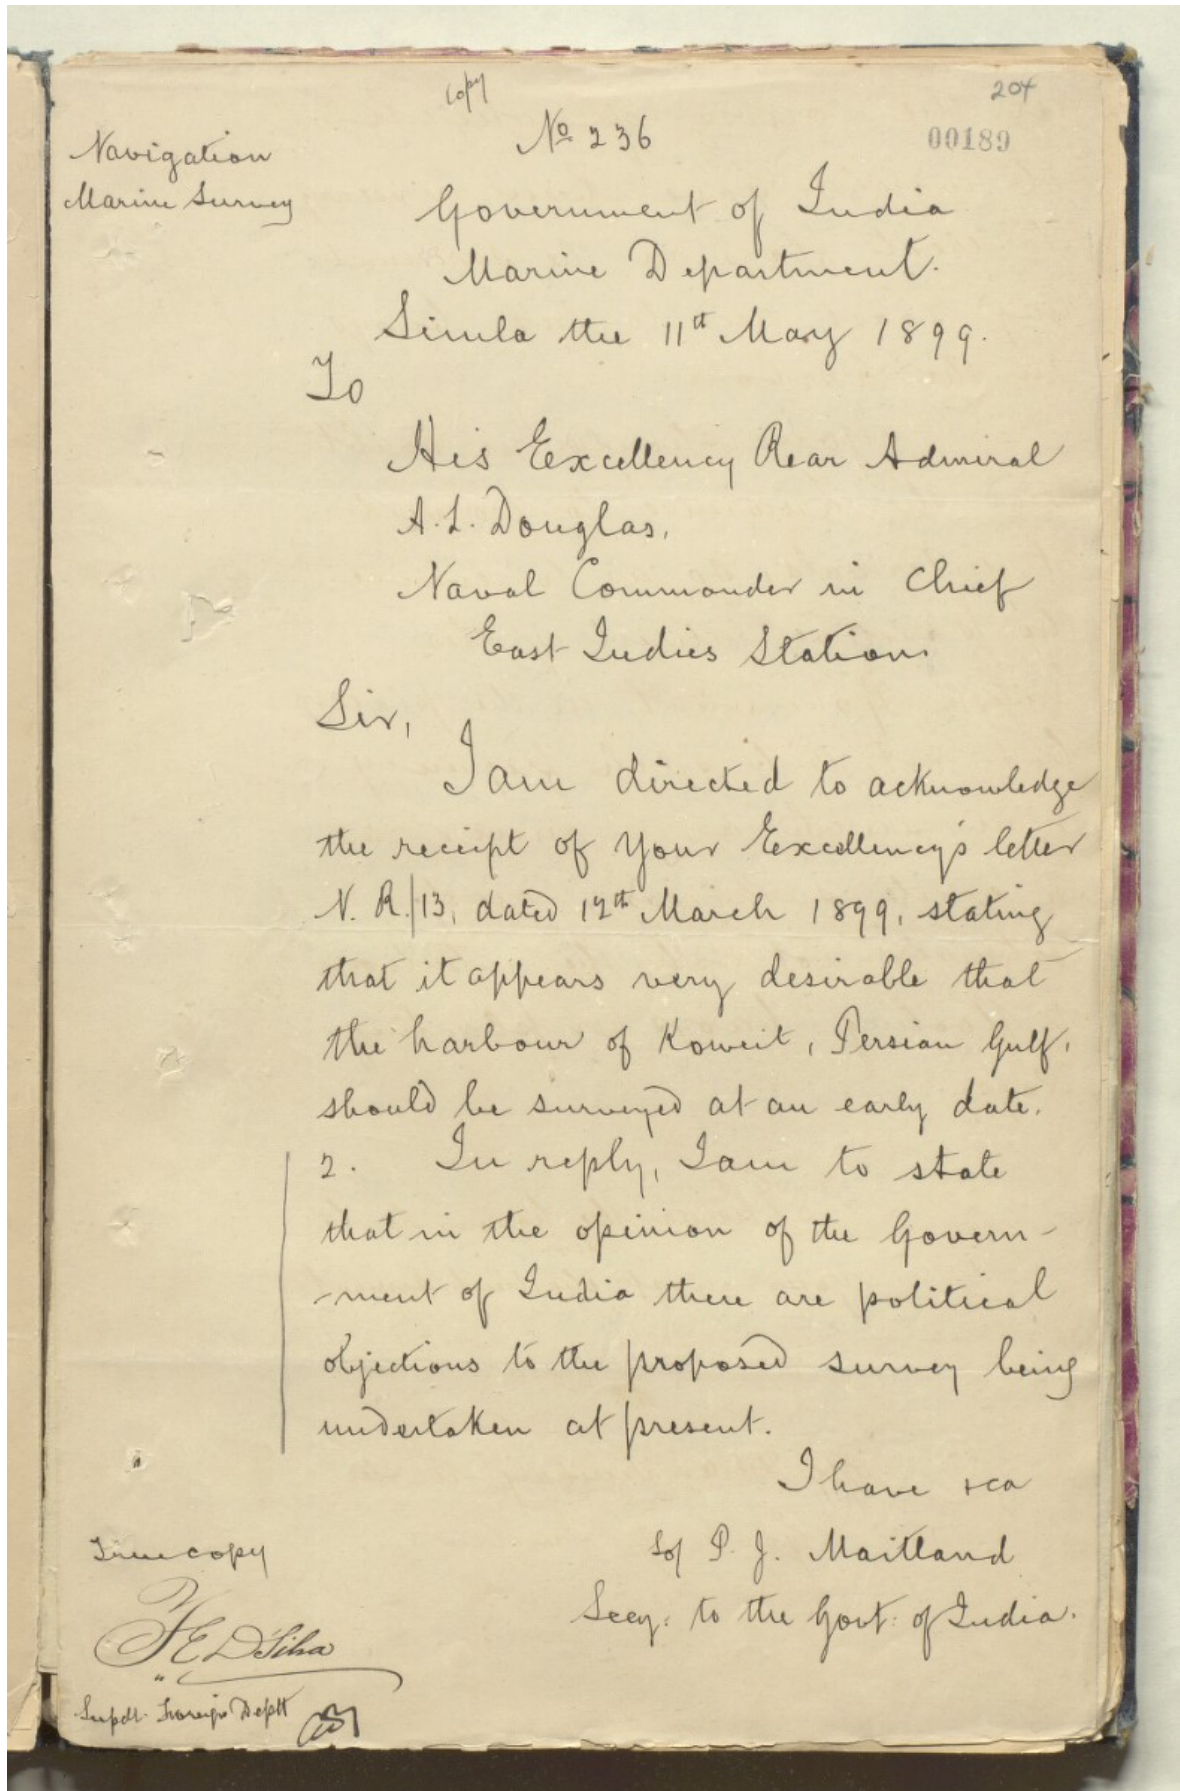 Copy
204
No 236
00189
Navigation
Marine Survey
Government of India
Marine Department.
Simla the 11th May 1899.
To
His Excellency Rear Admiral
A. L. Douglas,
Naval Commander in Chief
East Indies Station.
Sir,
I am directed to acknowledge
the receipt of Your Excellency's letter
N. R./13, dated 12th March 1899, stating
that it appears very desirable that
the harbour of Koweit, Persian Gulf,
should be surveyed at an early date.
2. In reply, I am to state
that in the opinion of the Govern-
-ment of India there are political
objections to the proposed survey being
undertaken at present.
I have &ca
Sd/ P. J. Maitland
Secy. to the Govt. of India.
True copy
Supdt. Foreign Deptt